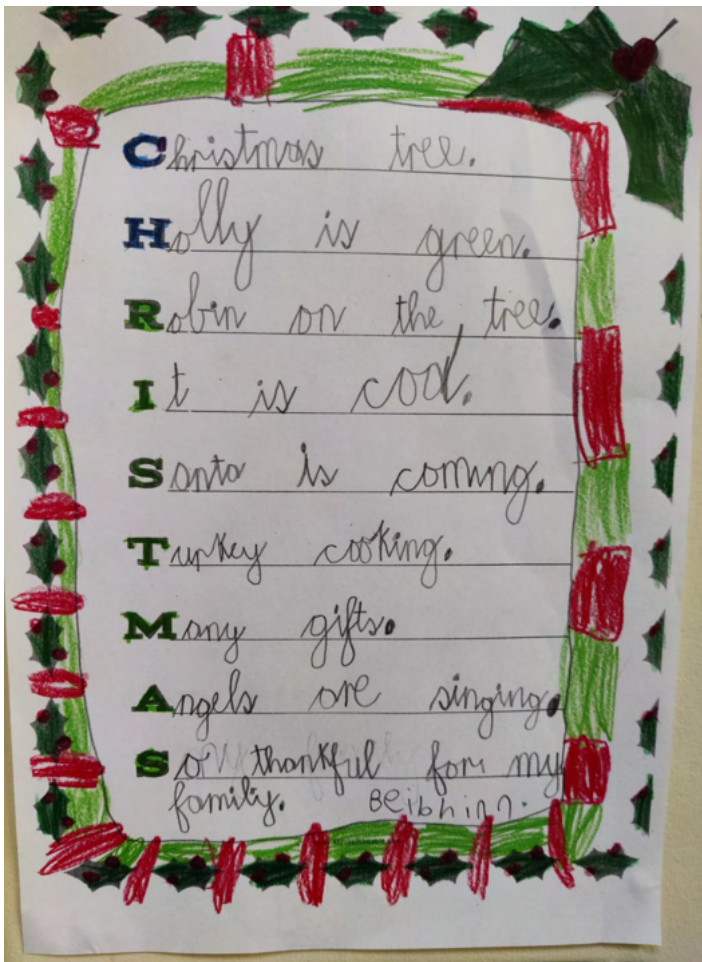 Christmas tree.
Holly is green.
Robin on the tree.
It is cool.
Santa is coming.
Turkey cooking.
Many gifts.
Angels are singing.
So thankful for my
family. Beibhinn.